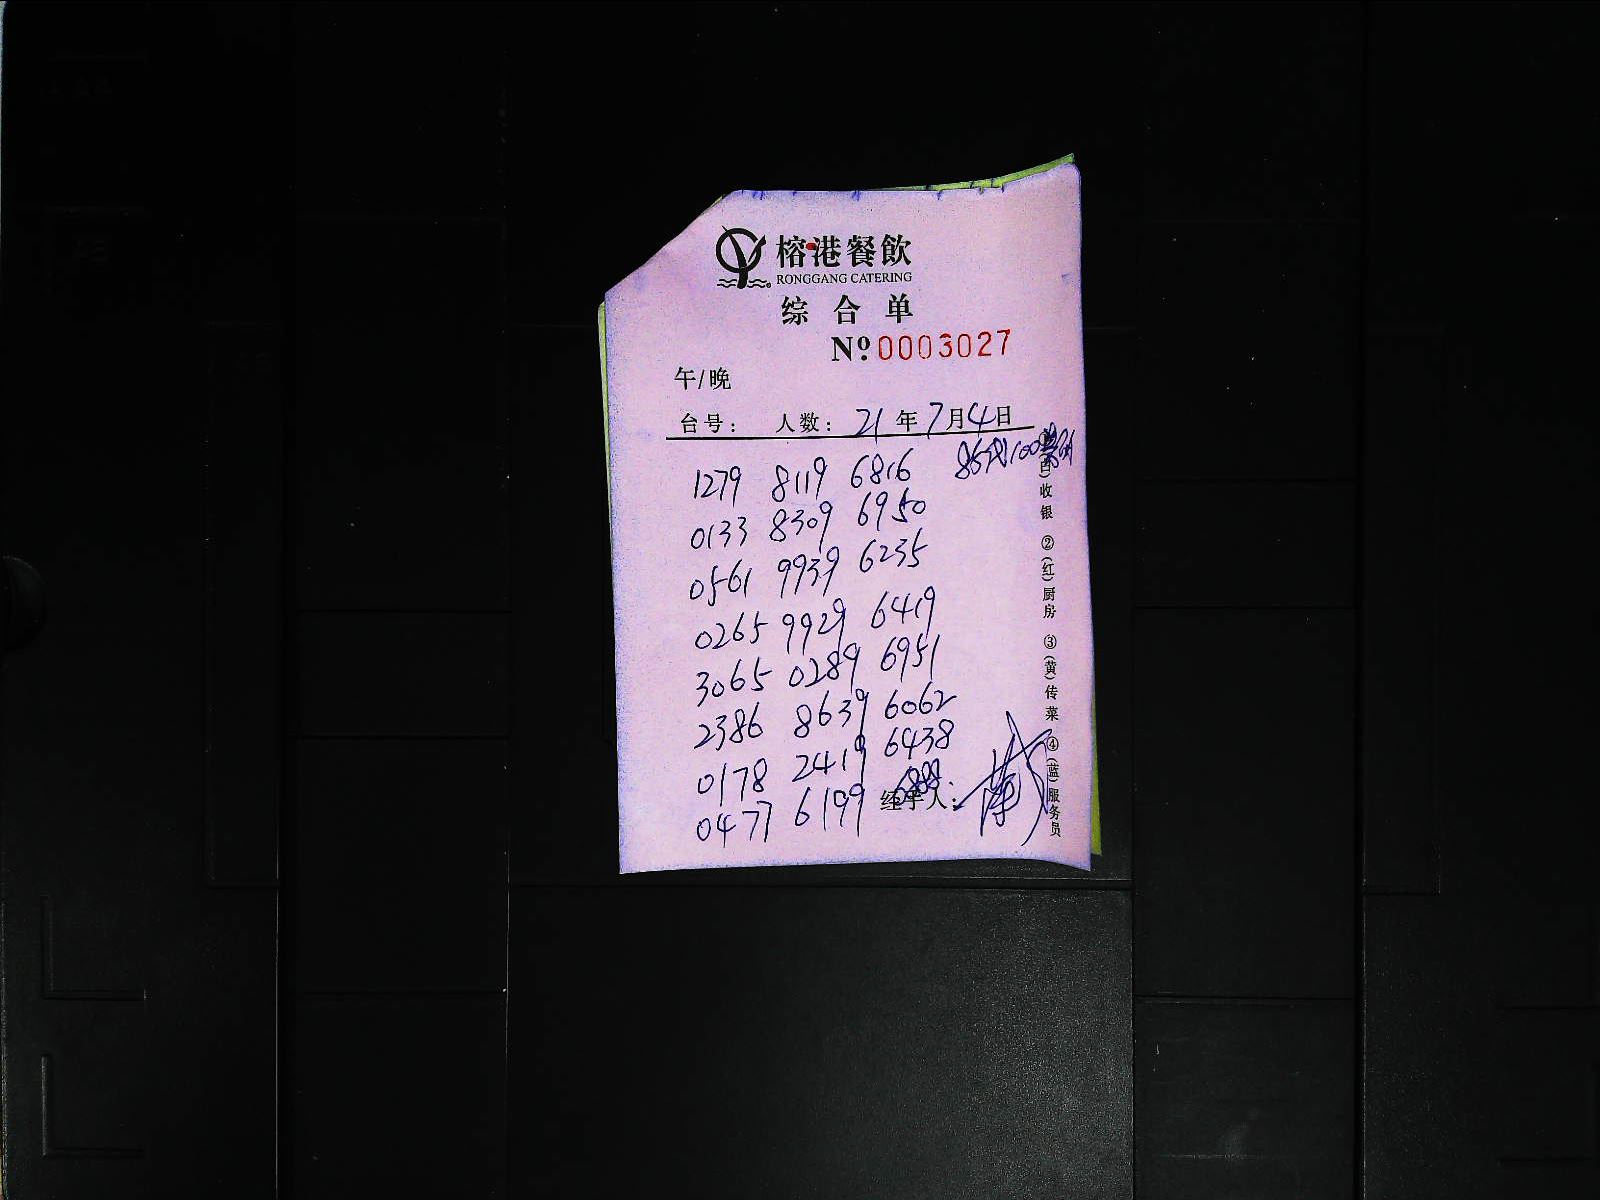 榕港餐飲
RONGGANG CATERING
综合单
Nº 0003027
午/晚
台号: 人数: 21年7月4日
1279 8119 6816
0133 8309 6950
0561 9939 6235
0265 9929 6419
3065 0289 6951
2386 8639 6062
0178 2419 6438
0477 6199
经手人:
收银 ②(红)厨房 ③(黄)传菜 ④(蓝)服务员